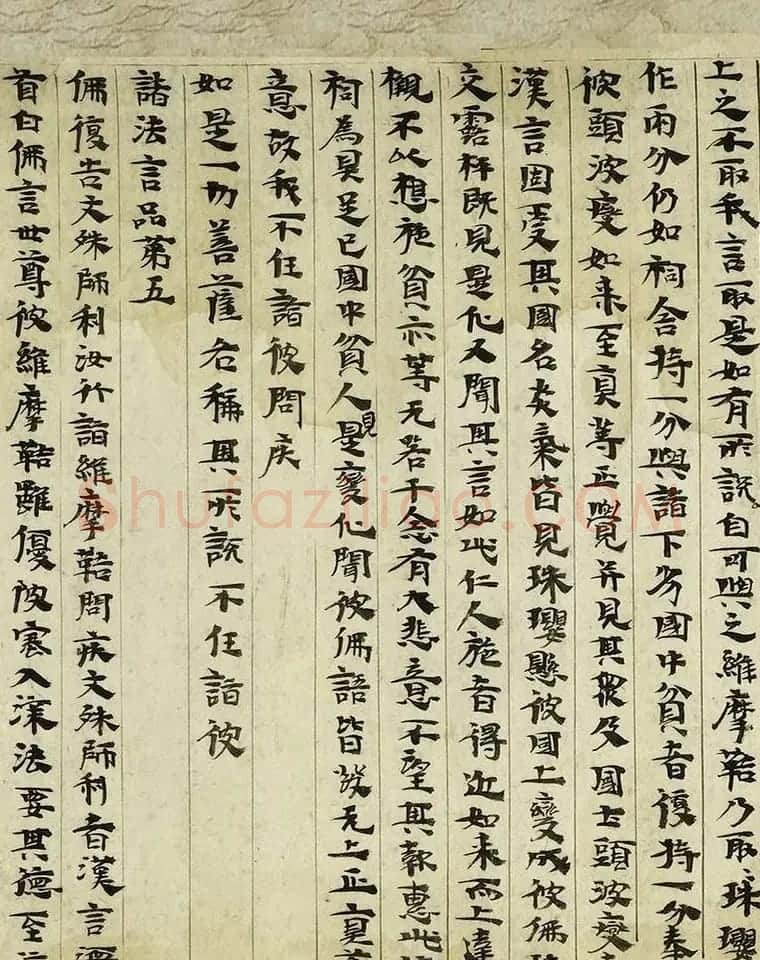 上之不取我言取是如有所說自可與之維摩鞊乃取珠瓔
作兩分仍如祠舍持一分與諸下劣國中貧者復持一分奉
彼頭波變如來至真等正覺并見其衆及國土頭波變
漢言固受其國名炎氣皆見珠瓔懸彼國上變成彼佛
交露枰既見是化又聞其言如此仁人施者得近如來而上達
櫬不以想施貧亦等无若干念有大悲意不望其報惠此
祠為具足已國中貧人見是變化聞彼佛語皆發无上正真
意故我不任詣彼問疾
如是一切菩薩各稱其所說不任詣彼
諸法言品第五
佛復告文殊師利汝行詣維摩鞊問疾文殊師利者漢言濡
首白佛言世尊彼維摩鞊雖優陂塞入深法要其德至
Shufaziliao.COM